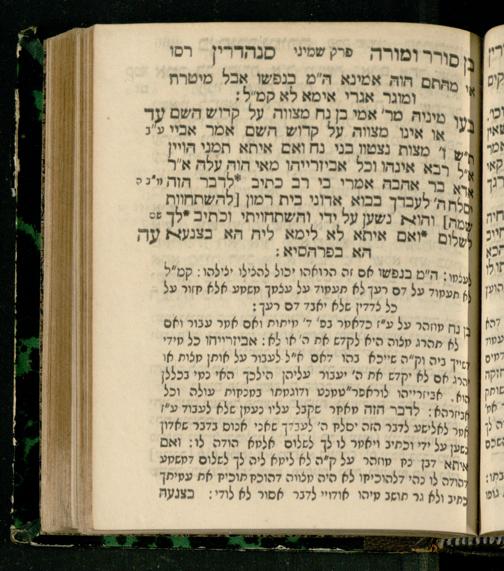 בן סורר ומורה פרק שמיני סנהדרין רסו
אי מהתם הוה אמינא ה"מ בנפשו אבל מיטרח
ומוגר אגרי אימא לא קמ"ל :
בעו מיניה מר' אמי בן נח מצווה על קדוש השם עד
או אינו מצווה על קדוש השם אמר אביי ע"ב
ת"ש ז' מצות נצטוו בני נח ואם איתא תמני הויין
א"ל רבא אינהו וכל אביזרייהו מאי הוה עלה א"ר
אדא בר אהבה אמרי בי רב כתיב *לדבר הזה מ"ב ה
יסלח ה' לעבדך בבוא אדוני בית רמון [להשתחוות
שמה] והוא נשען על ידי והשתחויתי וכתיב *לך שם
לשלום *ואם איתא לא לימא ליה הא בצנעא עה
הא בפרהסיא :
לעצמו : ה"מ בנפשו אם זה הרואהו יכול להצילו יצילהו : קמ"ל
לא תעמוד על דם רעך לא תעמוד על עצמך משמע אלא חזור על
כל לדדין שלא יאבד דם רעך :
בן נח מוזהר על ע"ז כדאמר בפ' ד' מיתות ואם אמר עבור ואם
לא תהרג מצוה היא לקדש את ה' או לא : אביזרייהו כל מידי
דשייך ביה וק"ה שייכא בהו דאם א"ל לעבור על אותן מצות או
יהרג אם לא יקדש את ה' יעבור עליהן הילכך האי נמי בכללן
הוא . אביזרייהו ודוגמתו במנחות עולה וכל
אביזרהא : לדבר הזה מאחר שקבל עליו נעמן שלא לעבוד ע"ז
אמר לאלישע לדבר הזה יסלח ה' לעבדך שאני אנוס בדבר שאדון
נשען על ידי וכתיב ויאמר לו לך לשלום אלמא הודה לו : ואם
איתא דבן נח מוזהר על ק"ה לא לימא ליה לך לשלום דמשמע
דהודה לו נהי דלהוכיחו לא היה מצווה דהוכח תוכיח את עמיתך
כתיב ולא גר תושב מיהו אודויי לדבר אסור לא לודי : בצנעה